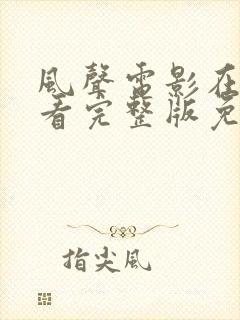 風聲電影在
看完整版免
指尖風